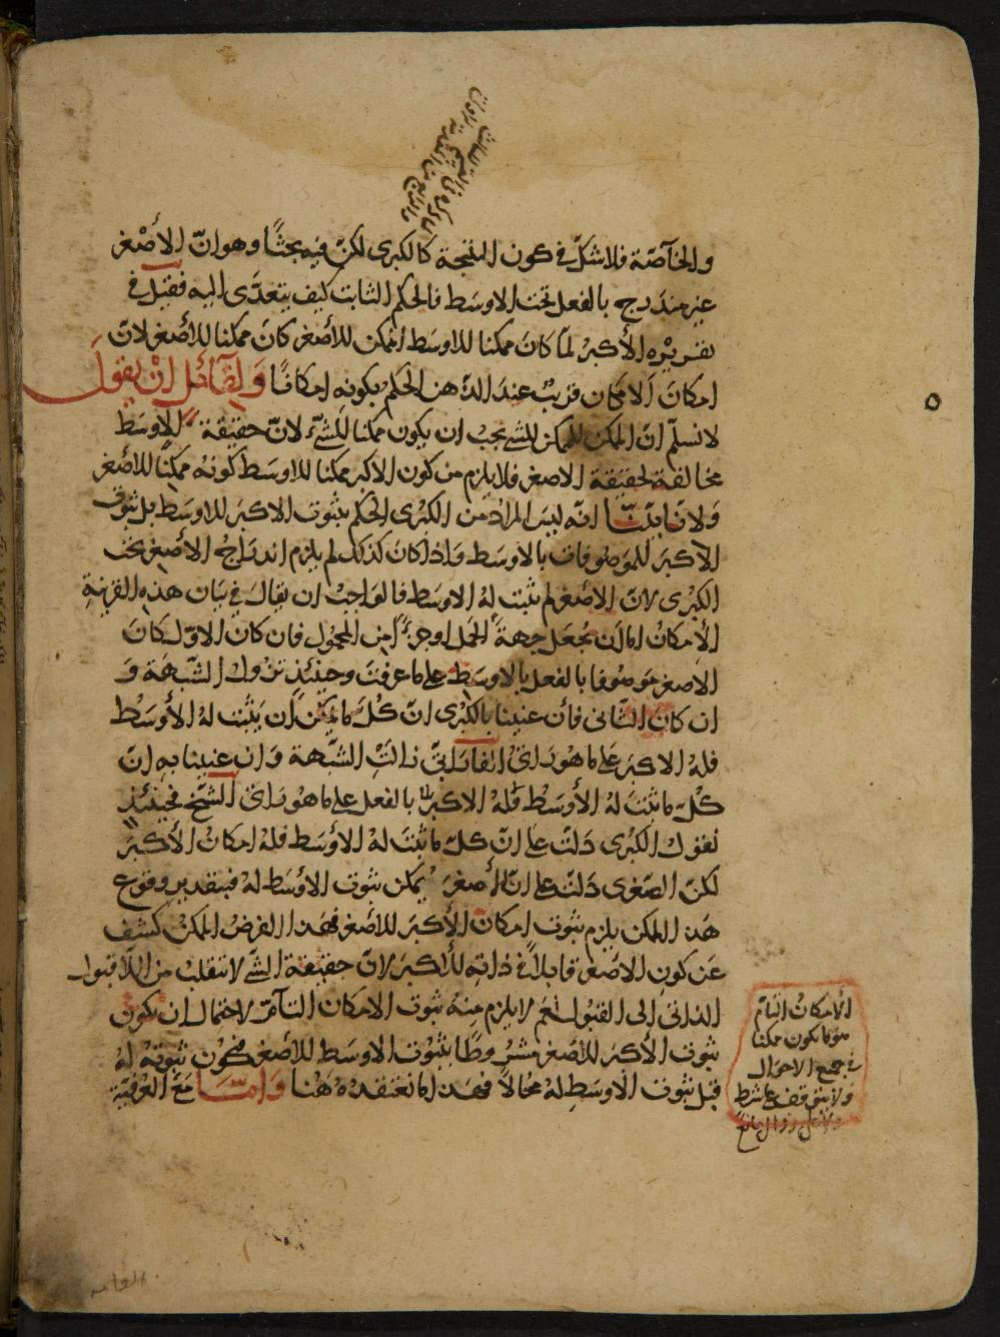 والخاصّة فلا شكّ في كون النتيجة كالكبرى لكن فيه بحثًا وهو انّ الأصغر
غير مندرج بالفعل تحت الاوسط فالحكم الثابت كيف يتعدّى اليه فقيل في
تقريره الأكبر لمّا كان ممكنا للاوسط الممكن للأصغر كان ممكنا للأصغر لانّ
امكان الامكان قريب عند الذهن الحكم بكونه امكانًا ولقائل ان يقول
لا نسلّم انّ الممكن للممكن للشئ يجب ان يكون ممكنا للشئ لانّ حقيقة الاوسط
مخالفة لحقيقة الاصغر فلا يلزم من كون الاكبر ممكنا للاوسط كونه ممكنًا للأصغر
ولانا بيّنّا انّه ليس المراد من الكبرى الحكم بثبوت الاكبر للاوسط بل ثبوت
الأكبر للموصوفات بالاوسط واذا كان كذلك لم يلزم اندراج الأصغر تحت
الكبرى لانّ الأصغر لم يثبت له الاوسط فالواجب ان يقال في بيان هذه القرينة
الأمكان اما ان يجعل جهة الحمل او جزءًا من المحمول فان كان الاوّل كان
الاصغر موصوفا بالفعل بالاوسط على ما عرفت وحينئذ تزول الشبهة و
ان كان الثاني فان عنينا بالكبرى انّ كلّ ما يمكن ان يثبت له الأوسط
فله الاكبر على ما هو رأى الفارابي زالت الشبهة وان عنينا به انّ
كلّ ما ثبت له الأوسط فله الاكبر بالفعل على ما هو رأى الشيخ فحينئذ
نقول الكبرى دلّت على انّ كلّ ما ثبت له الأوسط فله امكان الأكبر
لكنّ الصغرى دلّت على انّ الأصغر يمكن ثبوت الاوسط له فبتقدير وقوع
هذا الممكن يلزم ثبوت امكان الأكبر للاصغر فهذا الفرض الممكن كشف
عن كون الاصغر قابلاً في ذاته للأكبر لانّ حقيقة الشئ لا تنقلب من اللاقبول
الذاتى الى القبول نعم لا يلزم منه ثبوت الامكان التامّ لاحتمال ان يكون
ثبوت الأكبر للأصغر مشروطًا بثبوت الاوسط للأصغر فيكون ثبوته له
قبل ثبوت الاوسط له محالاً فهذا ما نعتقده هٰهنا وامّا مع العرفيّة
الامكان التام
هو ما يكون ممكنا
في جميع الاحوال
ولا يتوقف على شرط